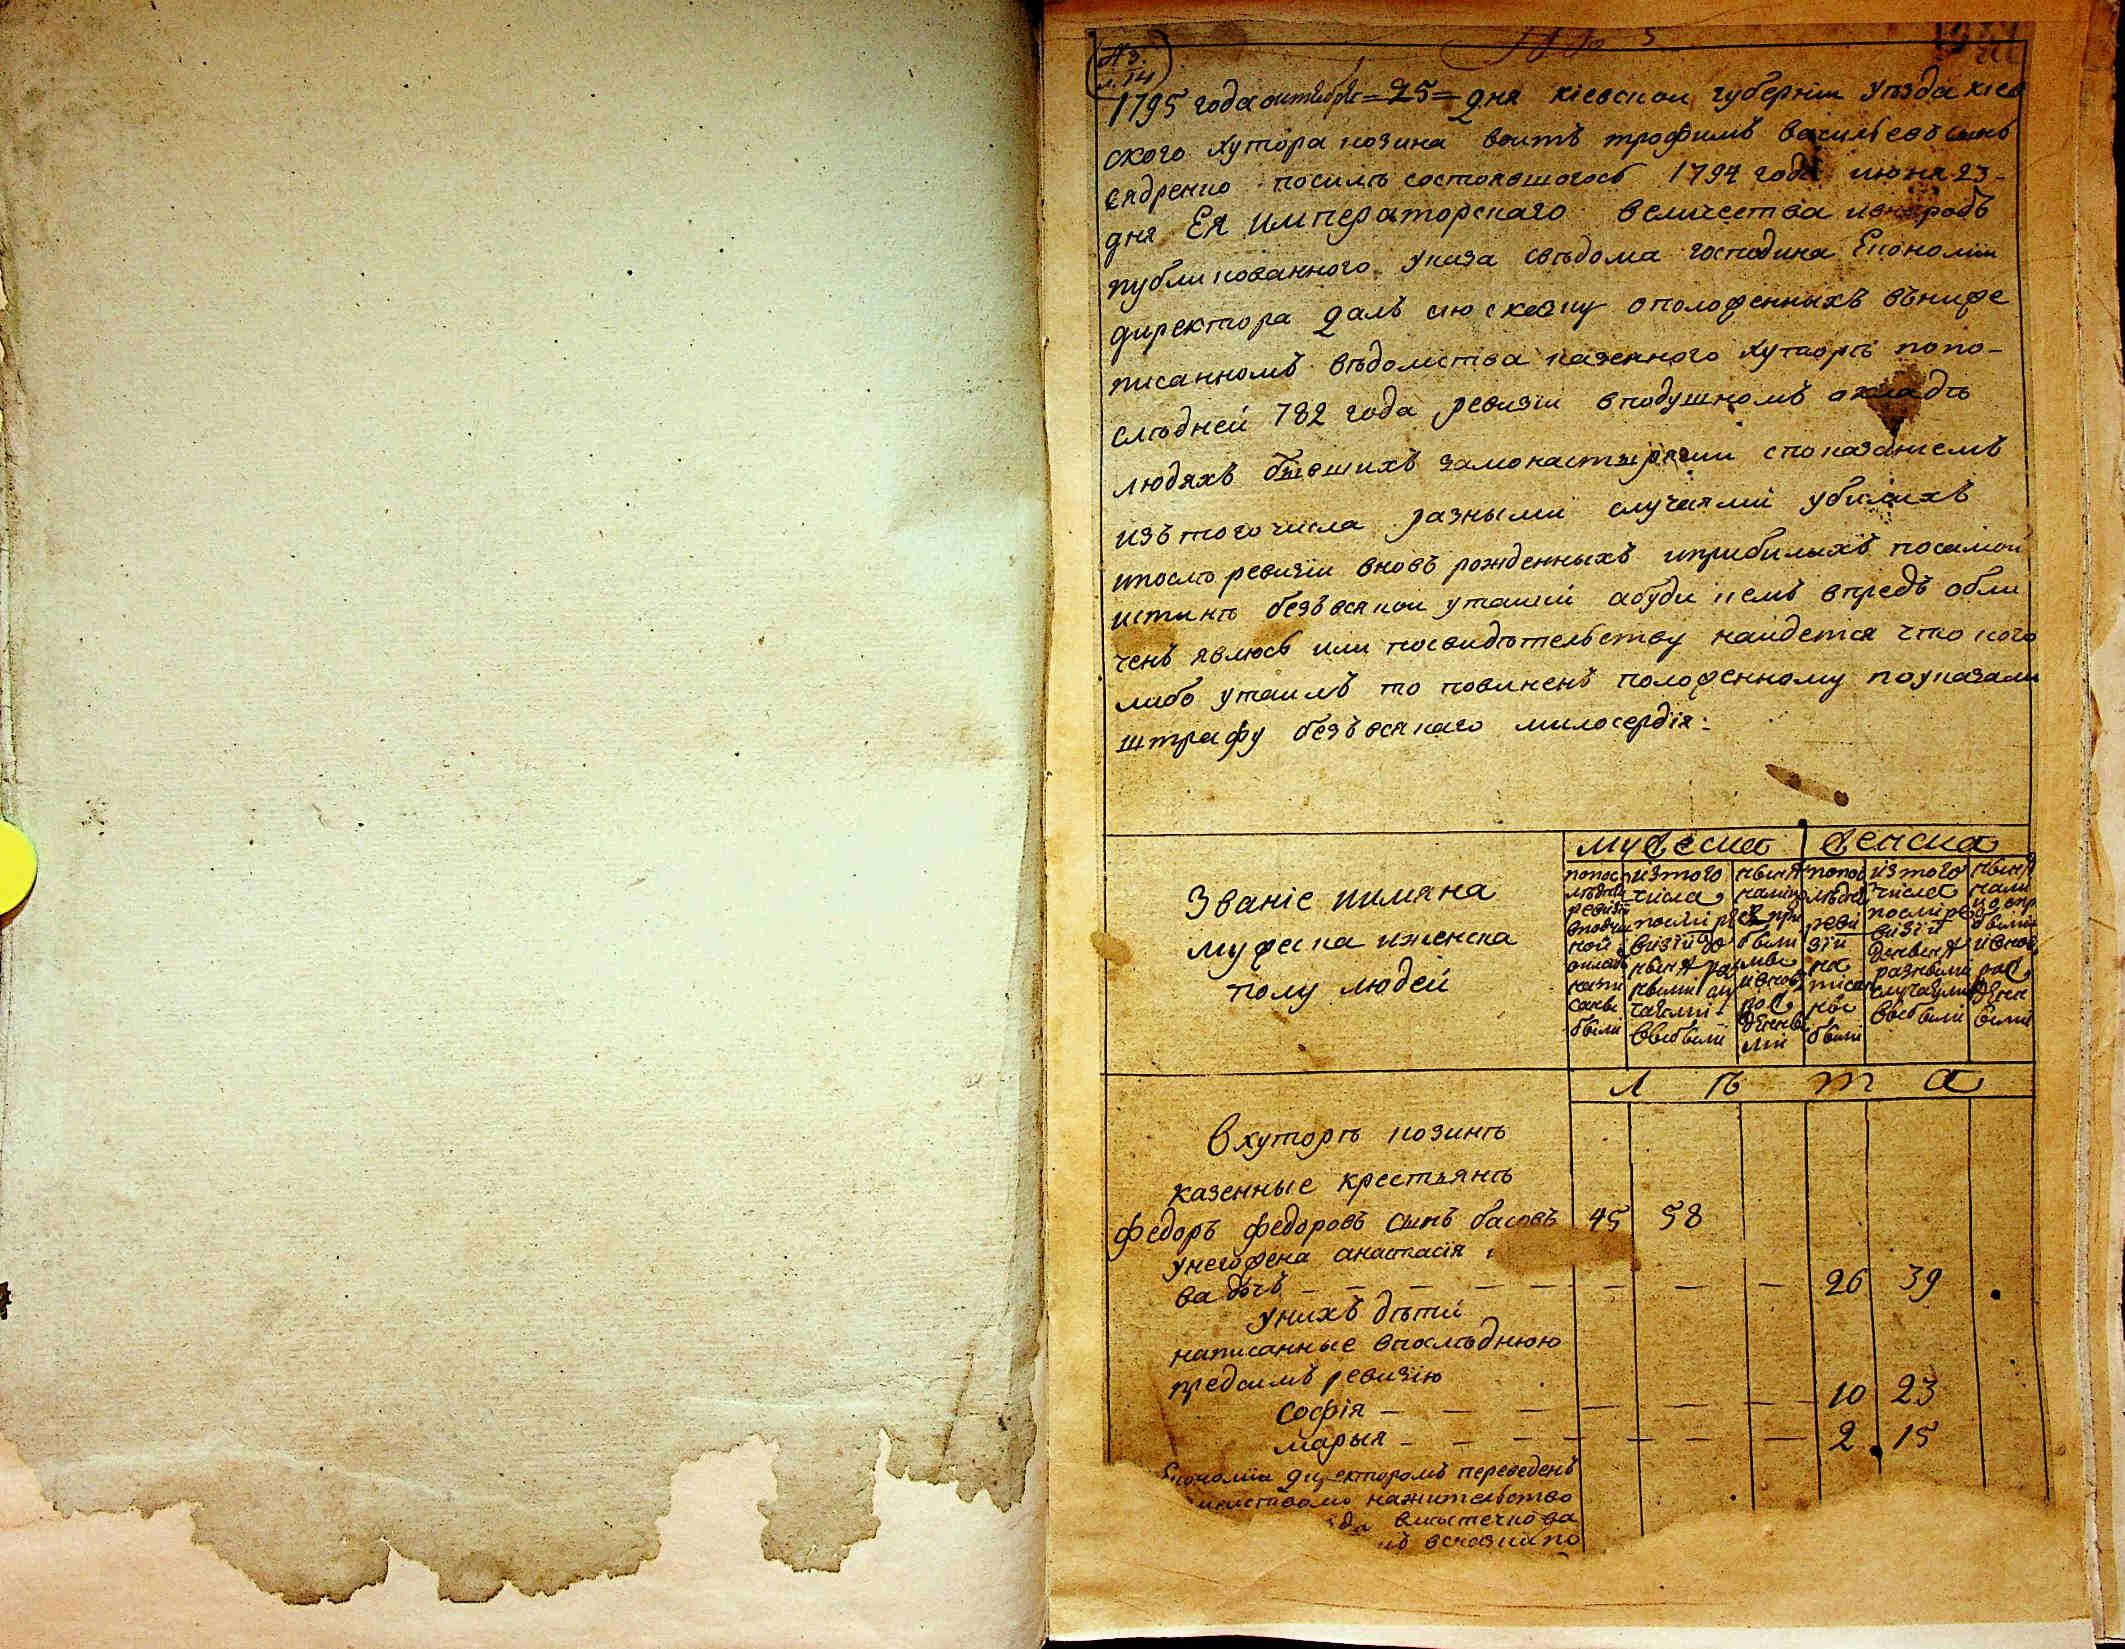 1795 года октября = 25 = дня кіевской губерніи уѣзда кіев
ского хутора козина воитъ трофимъ васильевъ сынъ
сядренко посилѣ состоявшогось 1794 года июня 23-
дня Ея императорскаго величества ивнародъ
публикованного указа свѣдома господина Економіи
директора далъ сию сказку оположенныхъ въниже
писанномъ вѣдомства казенного хуторѣ попо-
слѣдней 782 года ревизіи вподушномъ окладѣ
людяхъ бывшихъ замонастыремъ споказаніемъ
изътого числа разными случаями убилихъ
ипослѣ ревизіи вновъ рожденныхъ иприбилыхъ посамой
истинѣ безъвсякои утайки абуди чемъ впредъ обли
ченъ явлюсь или посвидѣтельству найдется что кого
либо утаилъ то повиненъ положенному поуказамъ
штрафу безъвсякаго милосердія:
мужеска женска
Званіе иимяна
мужеска иженска
полу людей
попос
лѣдней
ревизіи
вподуш
ной
окладъ
напи
саные
были
изтого
числа
послѣ ре
визіи до
ныня раз
ными слу
чаями
выбыли
ныня
налицо
при
были
ивновъ
рож
денны
ми
попос
лѣдне
реви
зіи
на
писан
ные
были
изтого
числа
послѣ ре
визіи
доныня
разными
случаями
выбыли
ныня
нали
цо спр
былим
ивновъ
рож
денн
ыми
л ѣ т а
Вхуторѣ козинѣ
казенные крестьянѣ
федоръ федоровъ сынъ басовъ 45 58
унегожена анастасія
ва дочъ — — — — — — — — 26 39
унихъ дѣти
написанные впослѣднюю
предсимъ ревизію
софія — — — — — — — 10 23
марья — — — — — — — 2 15
Економіи директоромъ переведенъ
нажительство
вместечко ва
всказки по